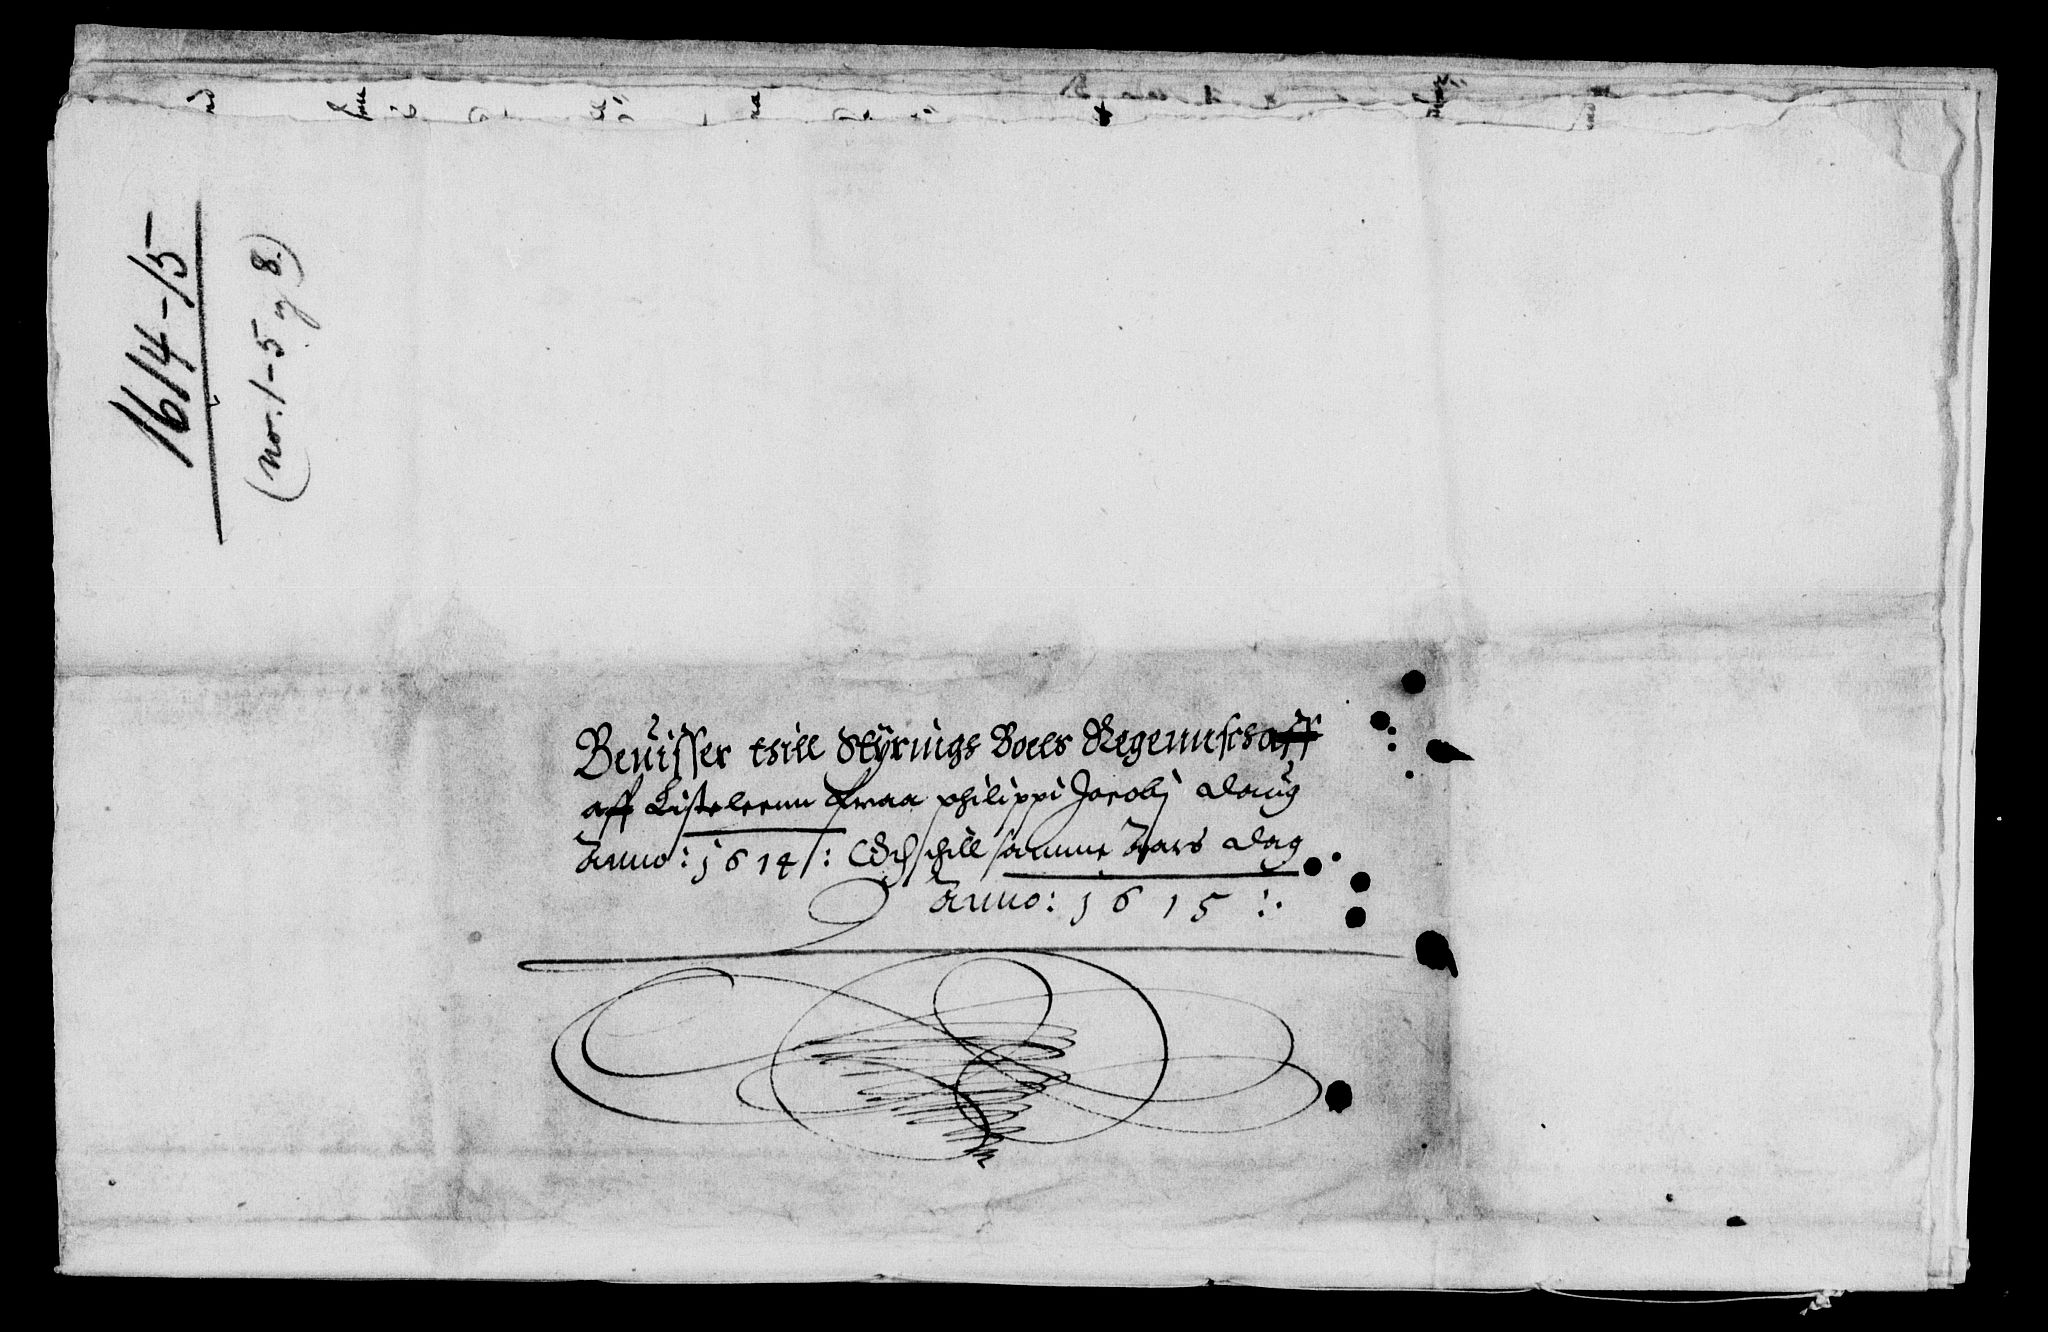 1614-15
(no. 1-5 og 8.)
Beuisser thill Styrings Boels Regennschaff
aff Listeleenn fraa philippi Jacobj daug
Anno: 1614: Och thill samme Aars dag
Anno: 1615 :.